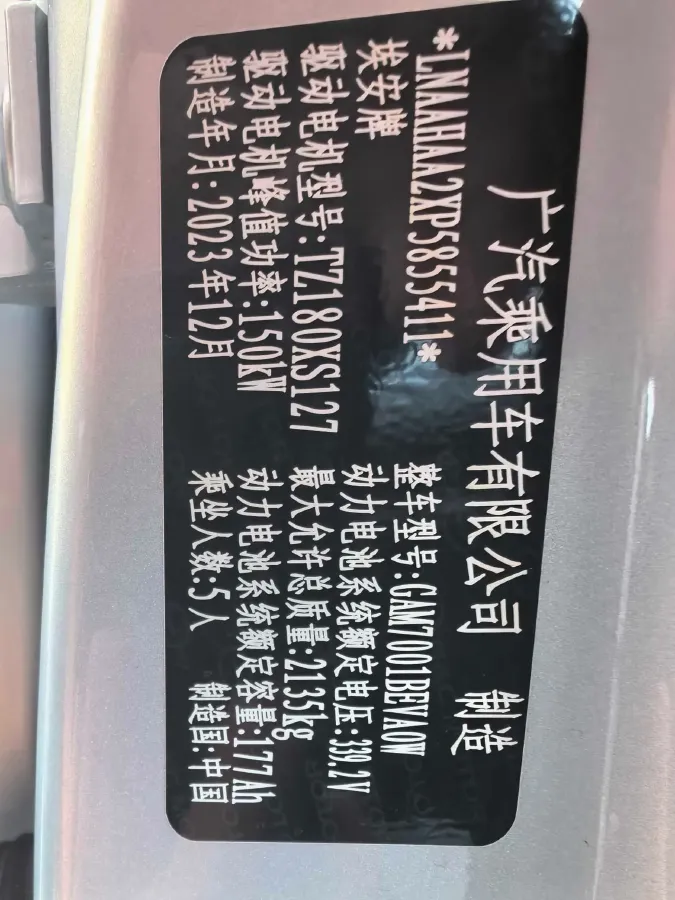 广汽乘用车有限公司 制造
*LNAAHAA2XP5855411*
埃安牌 整车型号:GAM7001BEVA0W
动力电池系统额定电压:339.2V
驱动电机型号:TZ180XS127 最大允许总质量:2135kg
驱动电机峰值功率:150kW 动力电池系统额定容量:177Ah
制造年月:2023年12月 乘坐人数:5人 制造国:中国